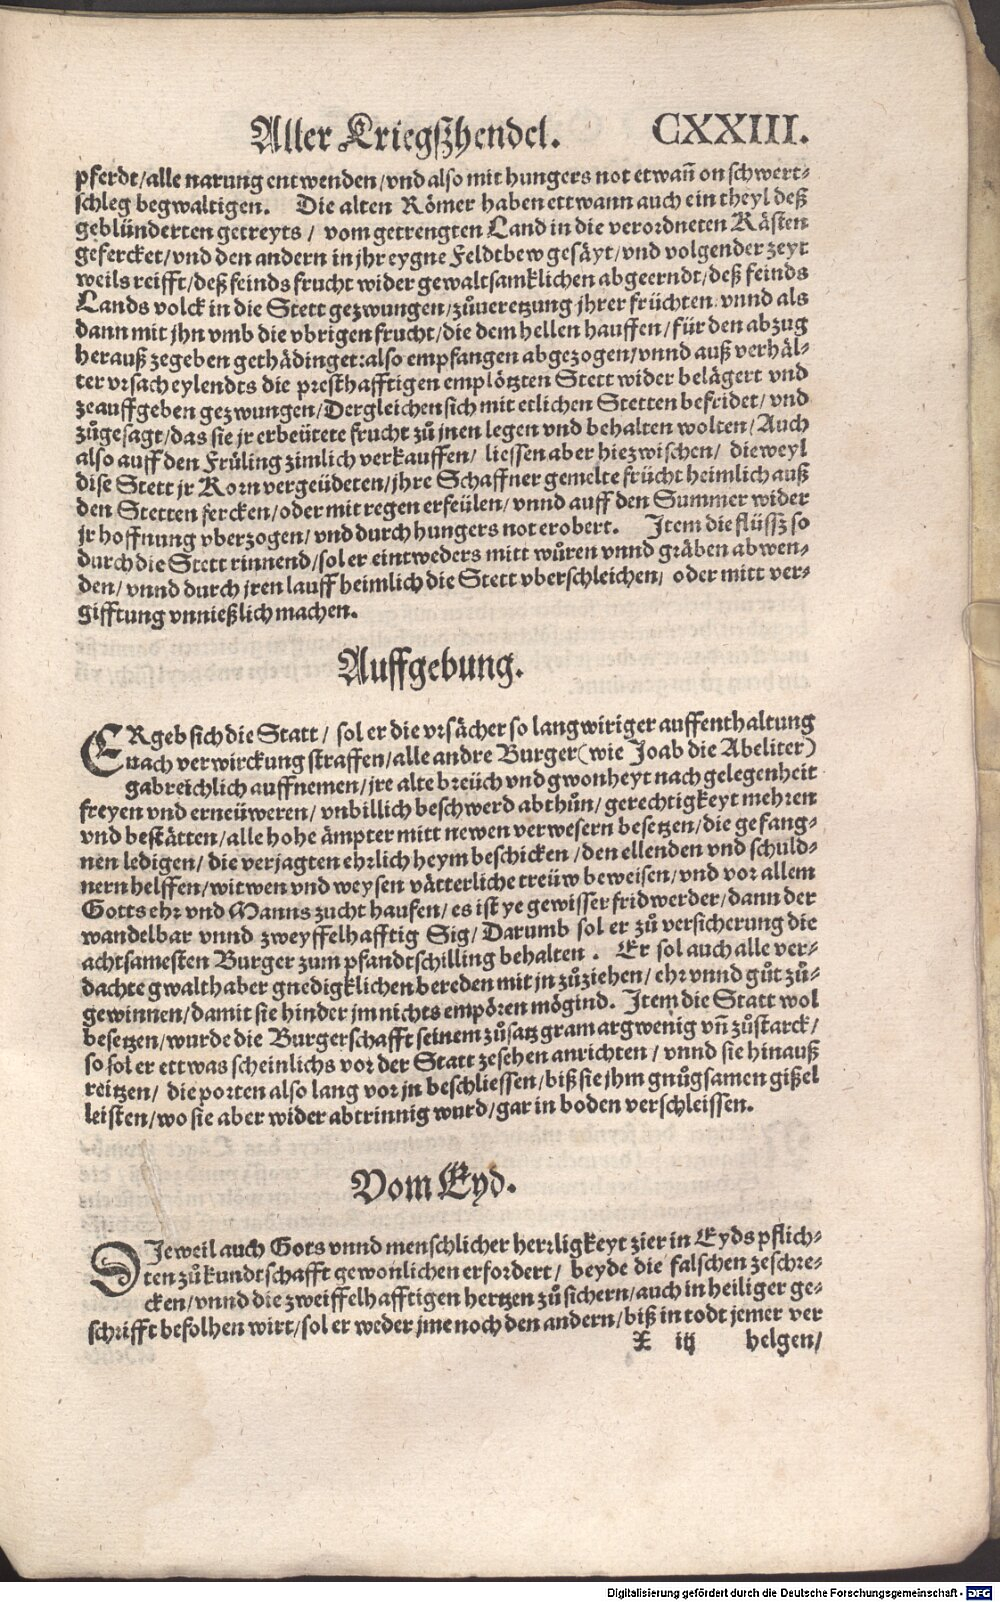 Aller Kriegßhendel. CXXIII.
pferdt/alle narung entwenden/vnd also mit hungers not etwañ on schwert⸗
schleg begwaltigen. Die alten Römer haben ettwann auch ein theyl deß
geblünderten getreyts/ vom getrengten Land in die verordneten Kästen
gefercket/vnd den andern in jhr eygne Feldtbew gesäyt/vnd volgender zeyt
weils reifft/deß feinds frucht wider gewaltsamklichen abgeerndt/deß feinds
Lands volck in die Stett gezwungen/zůueretzung jhrer früchten vnnd als
dann mit jhn vmb die vbrigen frucht/die dem hellen hauffen/für den abzug
herauß zegeben gethädinget:also empfangen abgezogen/vnnd auß verhäl⸗
ter vrsach eylendts die presthafftigen emplötzten Stett wider belägert vnd
zeauffgeben gezwungen/Dergleichen sich mit etlichen Stetten befridet/vnd
zůgesagt/das sie jr erbeütete frucht zů jnen legen vnd behalten wolten/Auch
also auff den Früling zimlich verkauffen/ liessen aber hiezwischen/ dieweyl
dise Stett jr Korn vergeüdeten/jhre Schaffner gemelte frücht heimlich auß
den Stetten fercken/oder mit regen erfeülen/vnnd auff den Summer wider
jr hoffnung vberzogen/vnd durch hungers not erobert. Item die flüssz so
durch die Stett rinnend/sol er eintweders mitt wůren vnnd gräben abwen⸗
den/vnnd durch jren lauff heimlich die Stett vberschleichen/ oder mitt ver⸗
gifftung vnnießlich machen.
Auffgebung.
ERgeb sich die Statt/ sol er die vrsächer so langwiriger auffenthaltung
nach verwirckung straffen/alle andre Burger (wie Joab die Abeliter)
gabreichlich auffnemen/jre alte breüch vnd gwonheyt nach gelegenheit
freyen vnd erneüweren/ vnbillich beschwerd abthůn/gerechtigkeyt mehren
vnd bestätten/alle hohe ämpter mitt newen verwesern besetzen/die gefang⸗
nen ledigen/die verjagten ehrlich heym beschicken/den ellenden vnd schuld⸗
nern helffen/witwen vnd weysen vätterliche treüw beweisen/vnd vor allem
Gotts ehr vnd Manns zucht haufen/es ist ye gewisser frid werder/dann der
wandelbar vnnd zweyffelhafftig Sig/Darumb sol er zů versicherung die
achtsamesten Burger zum pfandtschilling behalten. Er sol auch alle ver⸗
dachte gwalthaber gnedigklichen bereden mit jn zůziehen/ehr vnnd gůt zů⸗
gewinnen/damit sie hinder jm nichts empören mögind. Item die Statt wol
besetzen/wurde die Burgerschafft seinem zůsatz gram argwenig vñ zůstarck/
so sol er ettwas scheinlichs vor der Statt zesehen anrichten/vnnd sie hinauß
reitzen/ die porten also lang vor jn beschliessen/biß sie jhm gnůgsamen gißel
leisten/wo sie aber wider abtrinnig wurd/gar in boden verschleissen.
Vom Eyd.
DJeweil auch Gots vnnd menschlicher herrligkeyt zier in Eyds pflich⸗
ten zů kundtschafft gewonlichen erfordert/ beyde die falschen zeschre⸗
cken/vnnd die zweiffelhafftigen hertzen zů sichern/auch in heiliger ge⸗
schrifft befolhen wirt/sol er weder jme noch den andern/biß in todt jemer ver
X iij helgen/
Digitalisierung gefördert durch die Deutsche Forschungsgemeinschaft - DFG